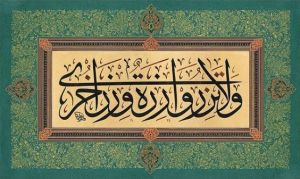 وَلَا تَزِرُ وَازِرَةٌ وِزْرَ أُخْرَى